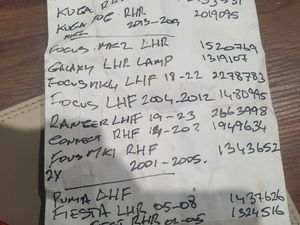 KUGA RHR
KUGA FOG RHR 2019095
MK2 2013-2019
FOCUS MK2 LHR 1520769
GALAXY LHR LAMP 1319107
FOCUS MK4 LHF 18-22 2278783
FOCUS LHF 2004-2012 1480995
RANGER LHF 19-23 2663998
CONNECT RHF 14-20? 1949634
FOCUS MK1 RHF 1343652
2001-2005.
2X
PUMA LHF
FIESTA LHR 05-08 1437626
RHR 02-05 1324516